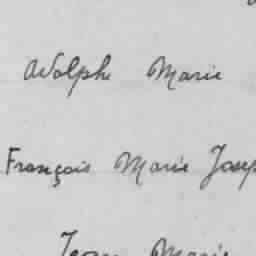 Adolphe Marie
François Marie Josep
Jean Marie